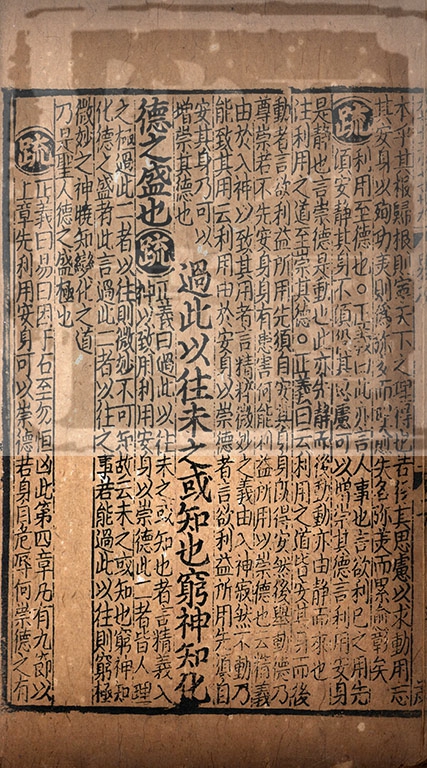 本乎其根歸根則寧天下之理得也若役其思慮以求動用忘
其安身以殉功美則爲弥多而理愈失名弥美而累愈彰矣
疏利用至德也。正義曰此亦言人事也言欲利己之用先
須安靜其身不須役其思慮可以增崇其德言利用安身
是靜也言崇德是動也此亦先靜而後動動亦由靜而來也
注利用之道至崇其德。正義曰云利用之道皆安其身而後
動者言欲利益所用先須自安其身身既得安然後舉動德乃
尊崇若不先安身身有患害何能利益所用以崇德也云精義
由於入神以致其用者言精粹微妙之義由入神寂然不動乃
能致其用云利用由於安身以崇德者言欲利益所用先須自
安其身乃可以
增崇其德也
過此以往未之或知也窮神知化
德之盛也疏
正義曰過此以往未之或知也者言精義入
神以致用利用安身以崇德此二者皆人理
之極過此二者以往則微妙不可知故云未之或知也窮神知
化德之盛者此言過此二者以往之事者能過此以往則窮極
微妙之神曉知變化之道
乃是聖人德之盛極也
疏正義曰易曰困于石至勿恒凶此第四章凡有九節以
上章先利用安身可以崇德若身自危辱何崇德之有